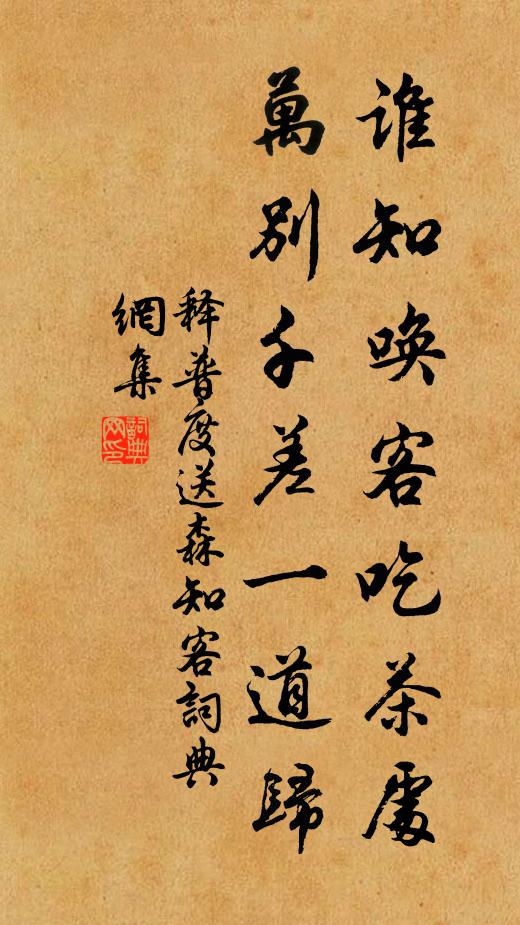 誰知喚客吃茶處
萬別千差一道歸
释普度送森知客詞典
網集
詞典
网印